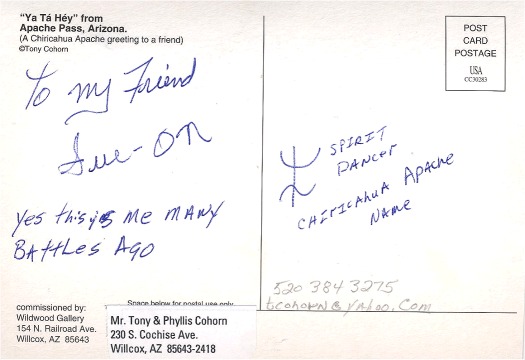 "Ya Tá Héy" from
Apache Pass, Arizona.
(A Chiricahua Apache greeting to a friend)
©Tony Cohorn
To my Friend
Sue-On
Yes this is me MANY
BATTLES AGO
commissioned by:
Wildwood Gallery
154 N. Railroad Ave.
Willcox, AZ 85643
POST
CARD
POSTAGE
USA
CC30283
SPIRIT
DANCER
CHIRICAHUA APACHE
NAME
520 384 3275
tcohorn@yahoo.com
Space below for postal use only
Mr. Tony & Phyllis Cohorn
230 S. Cochise Ave.
Willcox, AZ 85643-2418